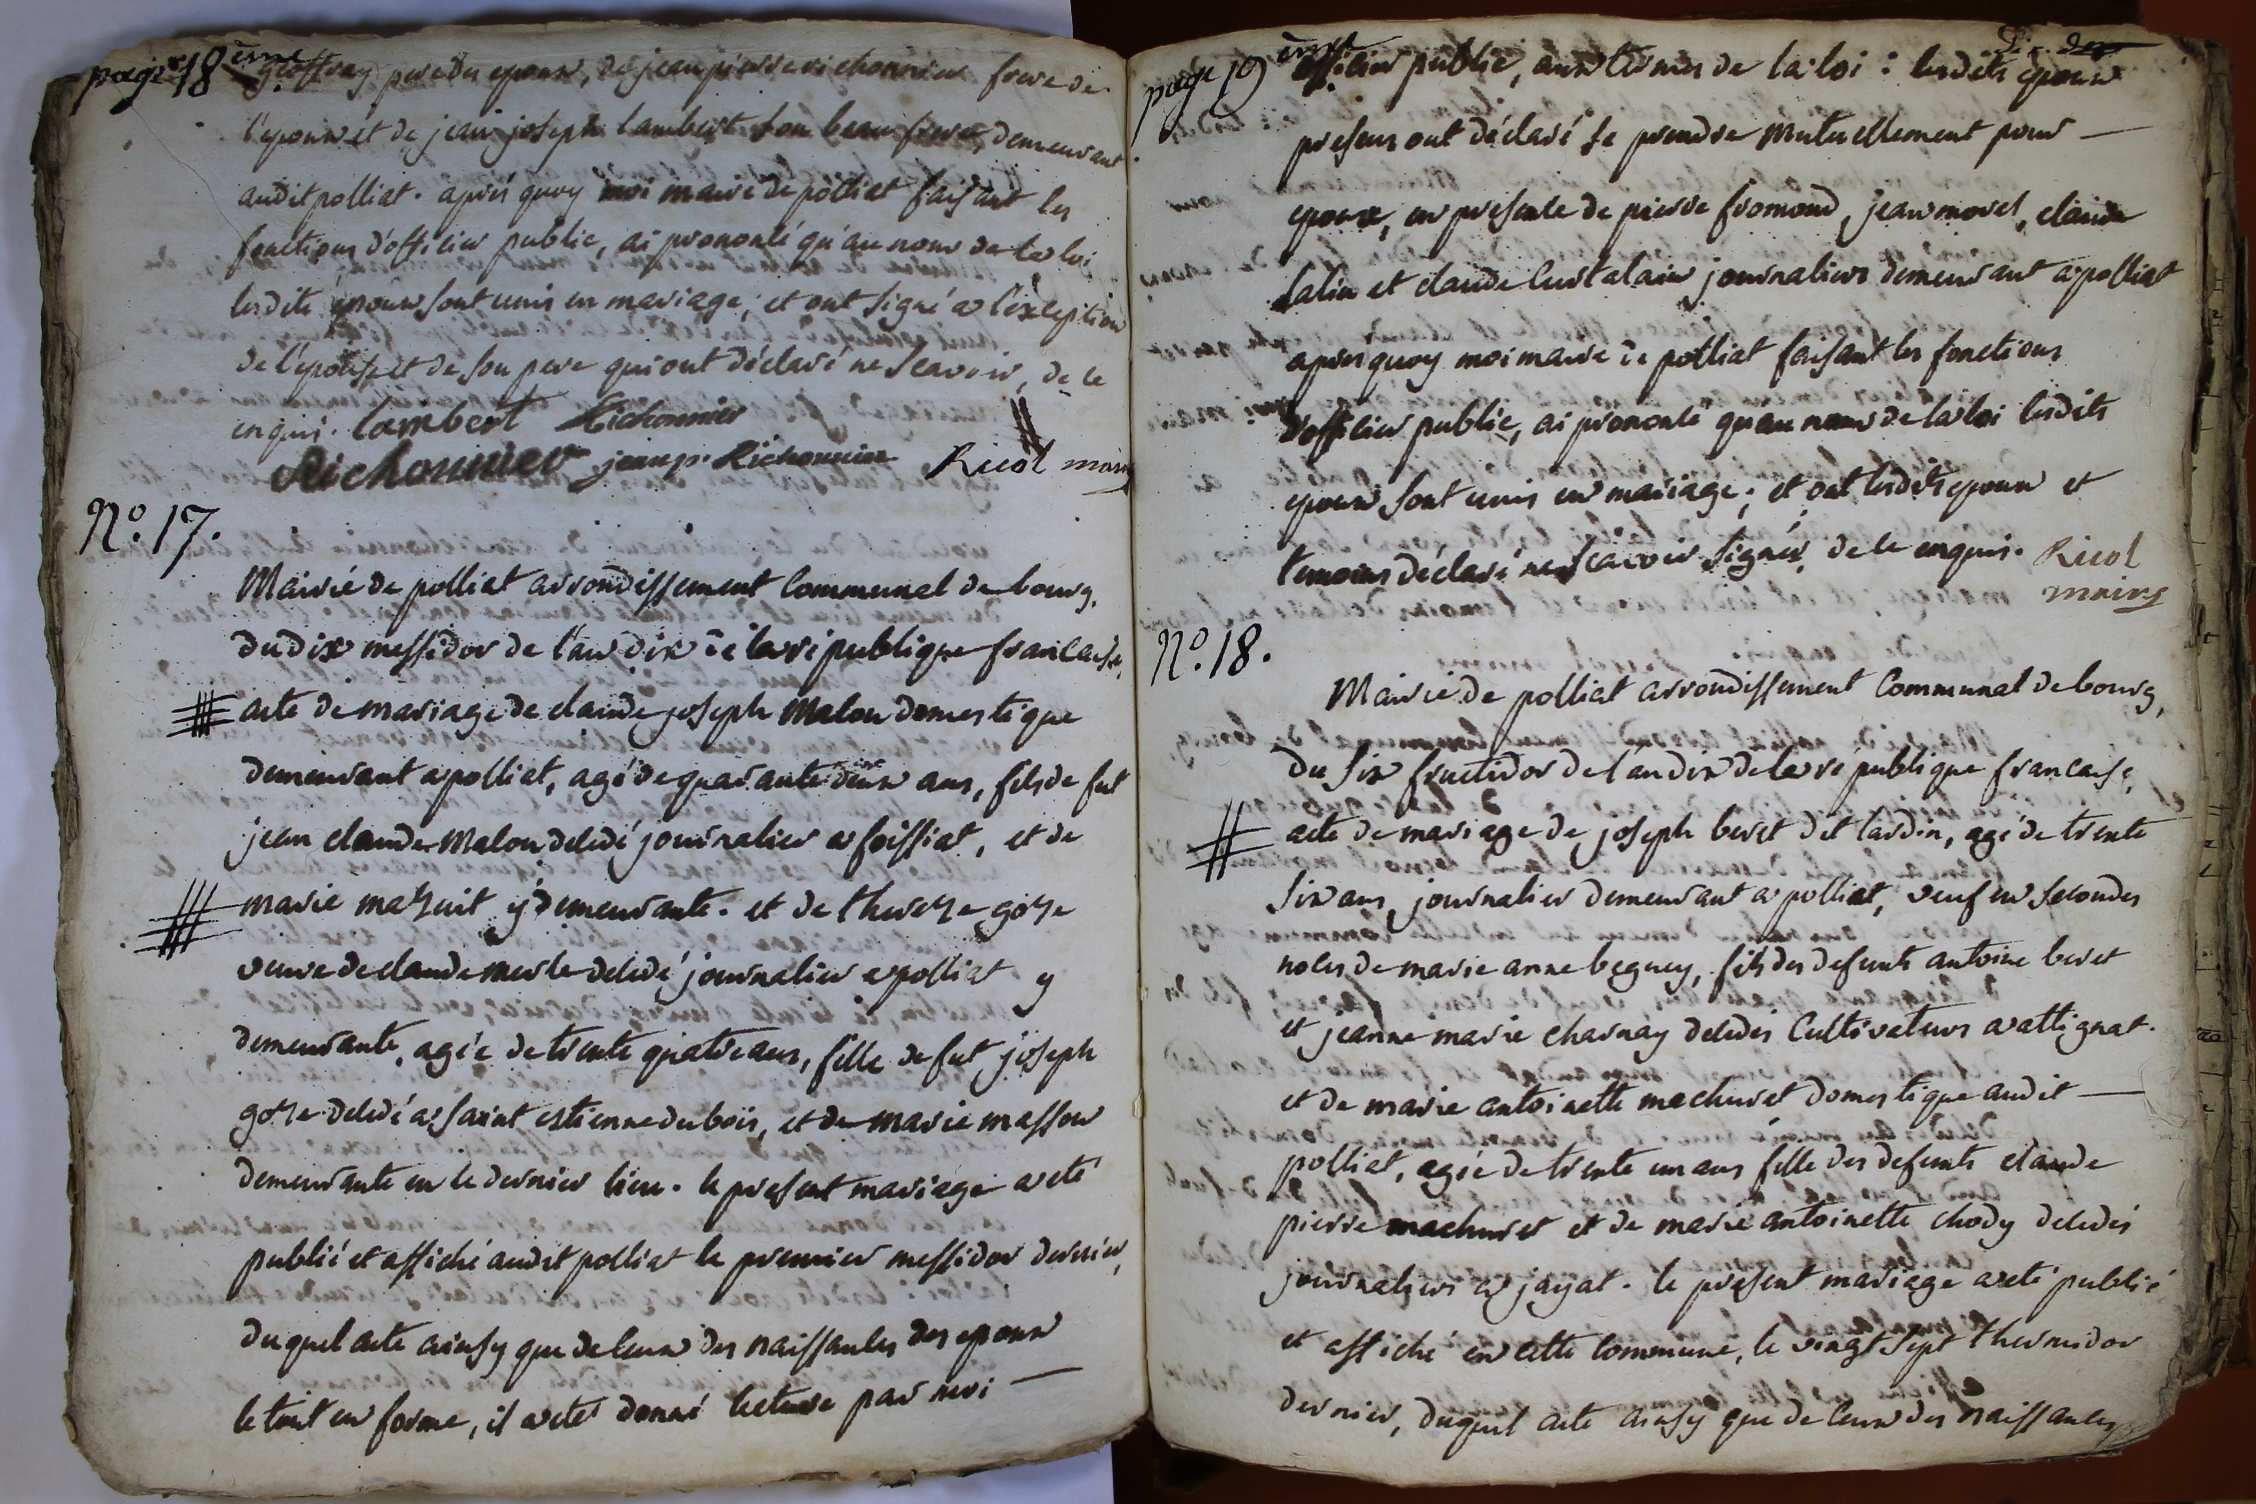 page 18 ème
geoffray pere du epoux, de jean pierre richonnier frere de
l'epoux et de jean joseph lambert son beau frere, demeurant
audit polliat. aprés quoy moi maire de polliat faisant les
fonctions d'officier public, ai prononcé qu'au nom de la loi
lesdits époux sont unis en mariage; et ont signé a l'exception
de l'épouse et de son pere qui ont déclaré ne scavoir, de ce
enquis. lambert Richonnier
Richonnier jean p. Richonnier Ricol maire
N.° 17.
Mairie de polliat arrondissement communal de bourg.
du dix messidor de l'an dix de la republique francaise,
acte de mariage de claude joseph Malon domestique
demeurant a polliat, agé de quarante deux ans, fils de fut
jean claude Malon décédé journalier a foissiat, et de
marie mazuit y demeurante. et de therese goze
veuve de claude merle décédé journalier a polliat y
demeurante, agée de trente quatre ans, fille de fut joseph
goze décédé a saint estienne du bois, et de marie masson
demeurante en ce dernier lieu. le present mariage a eté
publié et affiché audit polliat le premier messidor dernier,
duquel acte ainsy que de ceux des naissances des epoux
le tout en forme, il a eté donné lecture par moi
page 19 ème
officier public, aux termes de la loi : lesdits epoux
presens ont déclaré se prendre mutuellement pour
epoux, en presence de pierre fromond, jean morel, claude
salin et claude curtalain journaliers demeurant a polliat
apres quoy moi maire de polliat faisant les fonctions
d'officier public, ai prononcé qu'au nom de la loi lesdits
epoux sont unis en mariage; et ont lesdits epoux et
temoins déclaré ne scavoir signer, de ce enquis. Ricol
maire
N.° 18.
Mairie de polliat arrondissement communal de bourg,
du six fructidor de l'an dix de la republique francaise,
acte de mariage de joseph beret dit lardin, agé de trente
six ans, journalier demeurant a polliat, veuf en secondes
noces de marie anne beguey, fils des defunts antoine beret
et jeanne marie charnay décédés cultivateurs a attignat.
et de marie antoinette machuret domestique audit
polliat, agée de trente un ans fille des defunts claude
pierre machuret et de marie antoinette chody décédés
journaliers a jayat. le present mariage a eté publié
et affiché en cette commune, le vingt sept thermidor
dernier, duquel acte ainsy que de ceux des naissances